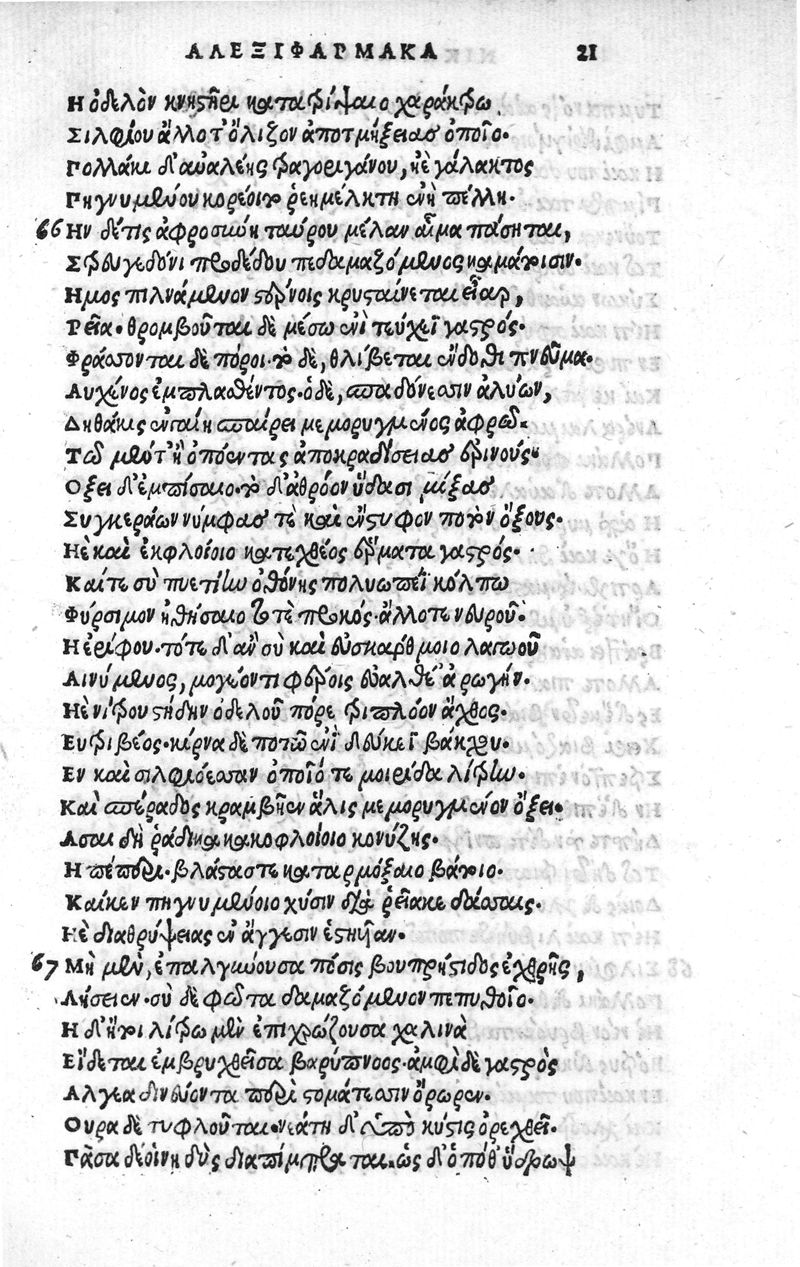 ΑΛΕΞΙΦΑΡΜΑΚΑ 21
Η ὀδελὸν κνηστῆρι κατατρίψαιο χαράκτρῳ
Σιλφίου ἄλλοτ' ὄλιζον ἀποτμήξειας ὀποῖο.
Πολλάκι δ' αὐαλέης τραγοριγάνου, ἠὲ γάλακτος
Πηγνυμένου κορέοιτο νέῃ μέλκτῃ ἐνὶ πέλλῃ.
66 Ην δέ τις ἀφροσύνῃ ταύρου μέλαν αἷμα πάσηται,
Στρευγεδόνι προδέδουπε δαμαζόμενος καμάτοισιν.
Ημος πιλνάμενον στέρνοις κρυσταίνεται εἶαρ,
Ρεῖα. θρομβοῦται δὲ μέσῳ ἐνὶ τεύχεϊ γαστρός.
Φράσσονται δὲ πόροι. τὸ δὲ, θλίβεται ἔνδοθι πνεῦμα.
Αυχένος ἐμπλασθέντος. ὁ δὲ, σπαδόνεσσιν ἀλύων,
Δηθάκις ἐν γαίῃ σπαίρει μεμορυγμένος ἀφρῷ.
Τῷ μέν τ' ἢ ὀπόεντας ἀποκραδίσειας ἐρινούς.
Οξει δ' ἐμπίσαιο. τὸ δ' ἀθρόον ὕδασι μίξας
Συγκεράων νύμφας τε καὶ ἔνστυφον ποτὸν ὄξους.
Ηὲ καὶ ἐκφλοίοιο καταχθέος ἕρματα γαστρός.
Καί τε σὺ πυετίην ὀθόνης πολυωπέϊ κόλπῳ
Φύρσιμον ἠθήσαιο τό τε προκός. ἄλλοτε νεβροῦ.
Η ἐρίφου. τότε δ' ἂν σὺ καὶ εὐσκάρθμοιο λαγωοῦ
Αινύμενος, μογέοντι φέροις εὐαλθέ' ἀρωγήν.
Ηὲ νίτρου στήδην ὀδελοῦ πόρε τριπλόον ἄχθος.
Ευτριβέος. κίρνα δὲ ποτῷ ἐνὶ δεύκεϊ βάκχου.
Εν καὶ σιλφιόεσσαν ὀποῖό τε μοιρίδα λίτρην.
Καὶ σπέραδος κραμβῆεν ἅλις μεμορυγμένον ὄξει.
Ασαι δὴ ῥάδικα κακοφλοίοιο κονύζης.
Η πέπερι. βλάστας τε καταρμόξαιο βάτοιο.
Καί κεν πηγνυμένοιο χύσιν διὰ ῥεῖα κεδάσσαις.
Ηὲ διαθρύψειας ἐν ἄγγεσιν ἑστηῶτα.
67 Μὴ μὲν, ἐπαλγύνουσα πόσις βουπρήστιδος ἐχθρῆς,
Λήσειεν. σὺ δὲ φῶτα δαμαζόμενον πεπύθοιο.
Η δ' ἤτοι λίτρῳ μὲν ἐπιχρώζουσα χαλινὰ
Εἴδεται ἐμβρυχθεῖσα βαρύπνοος. ἀμφὶ δὲ γαστρὸς
Αλγεα δινεύοντα περὶ στομάτεσσιν ὄρωρεν.
Ουρα δὲ τυφλοῦται. νεάτη δ' ὑπὸ κύστις ὀρεχθεῖ.
Πᾶσα δέ οἱ νηδὺς διαπίμπραται. ὡς δ' ὁπόθ' ὕδρωψ